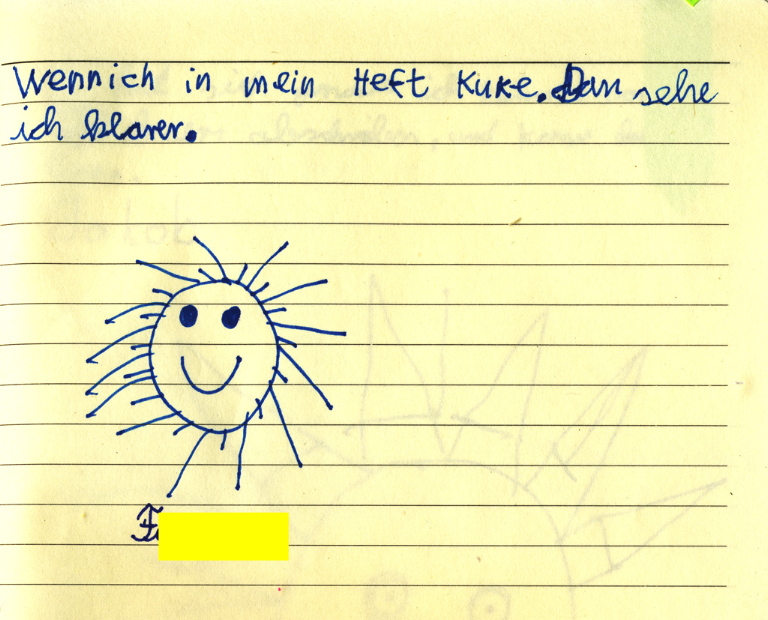 Wennich in mein Heft Kuke. Dan sehe
ich klarer.